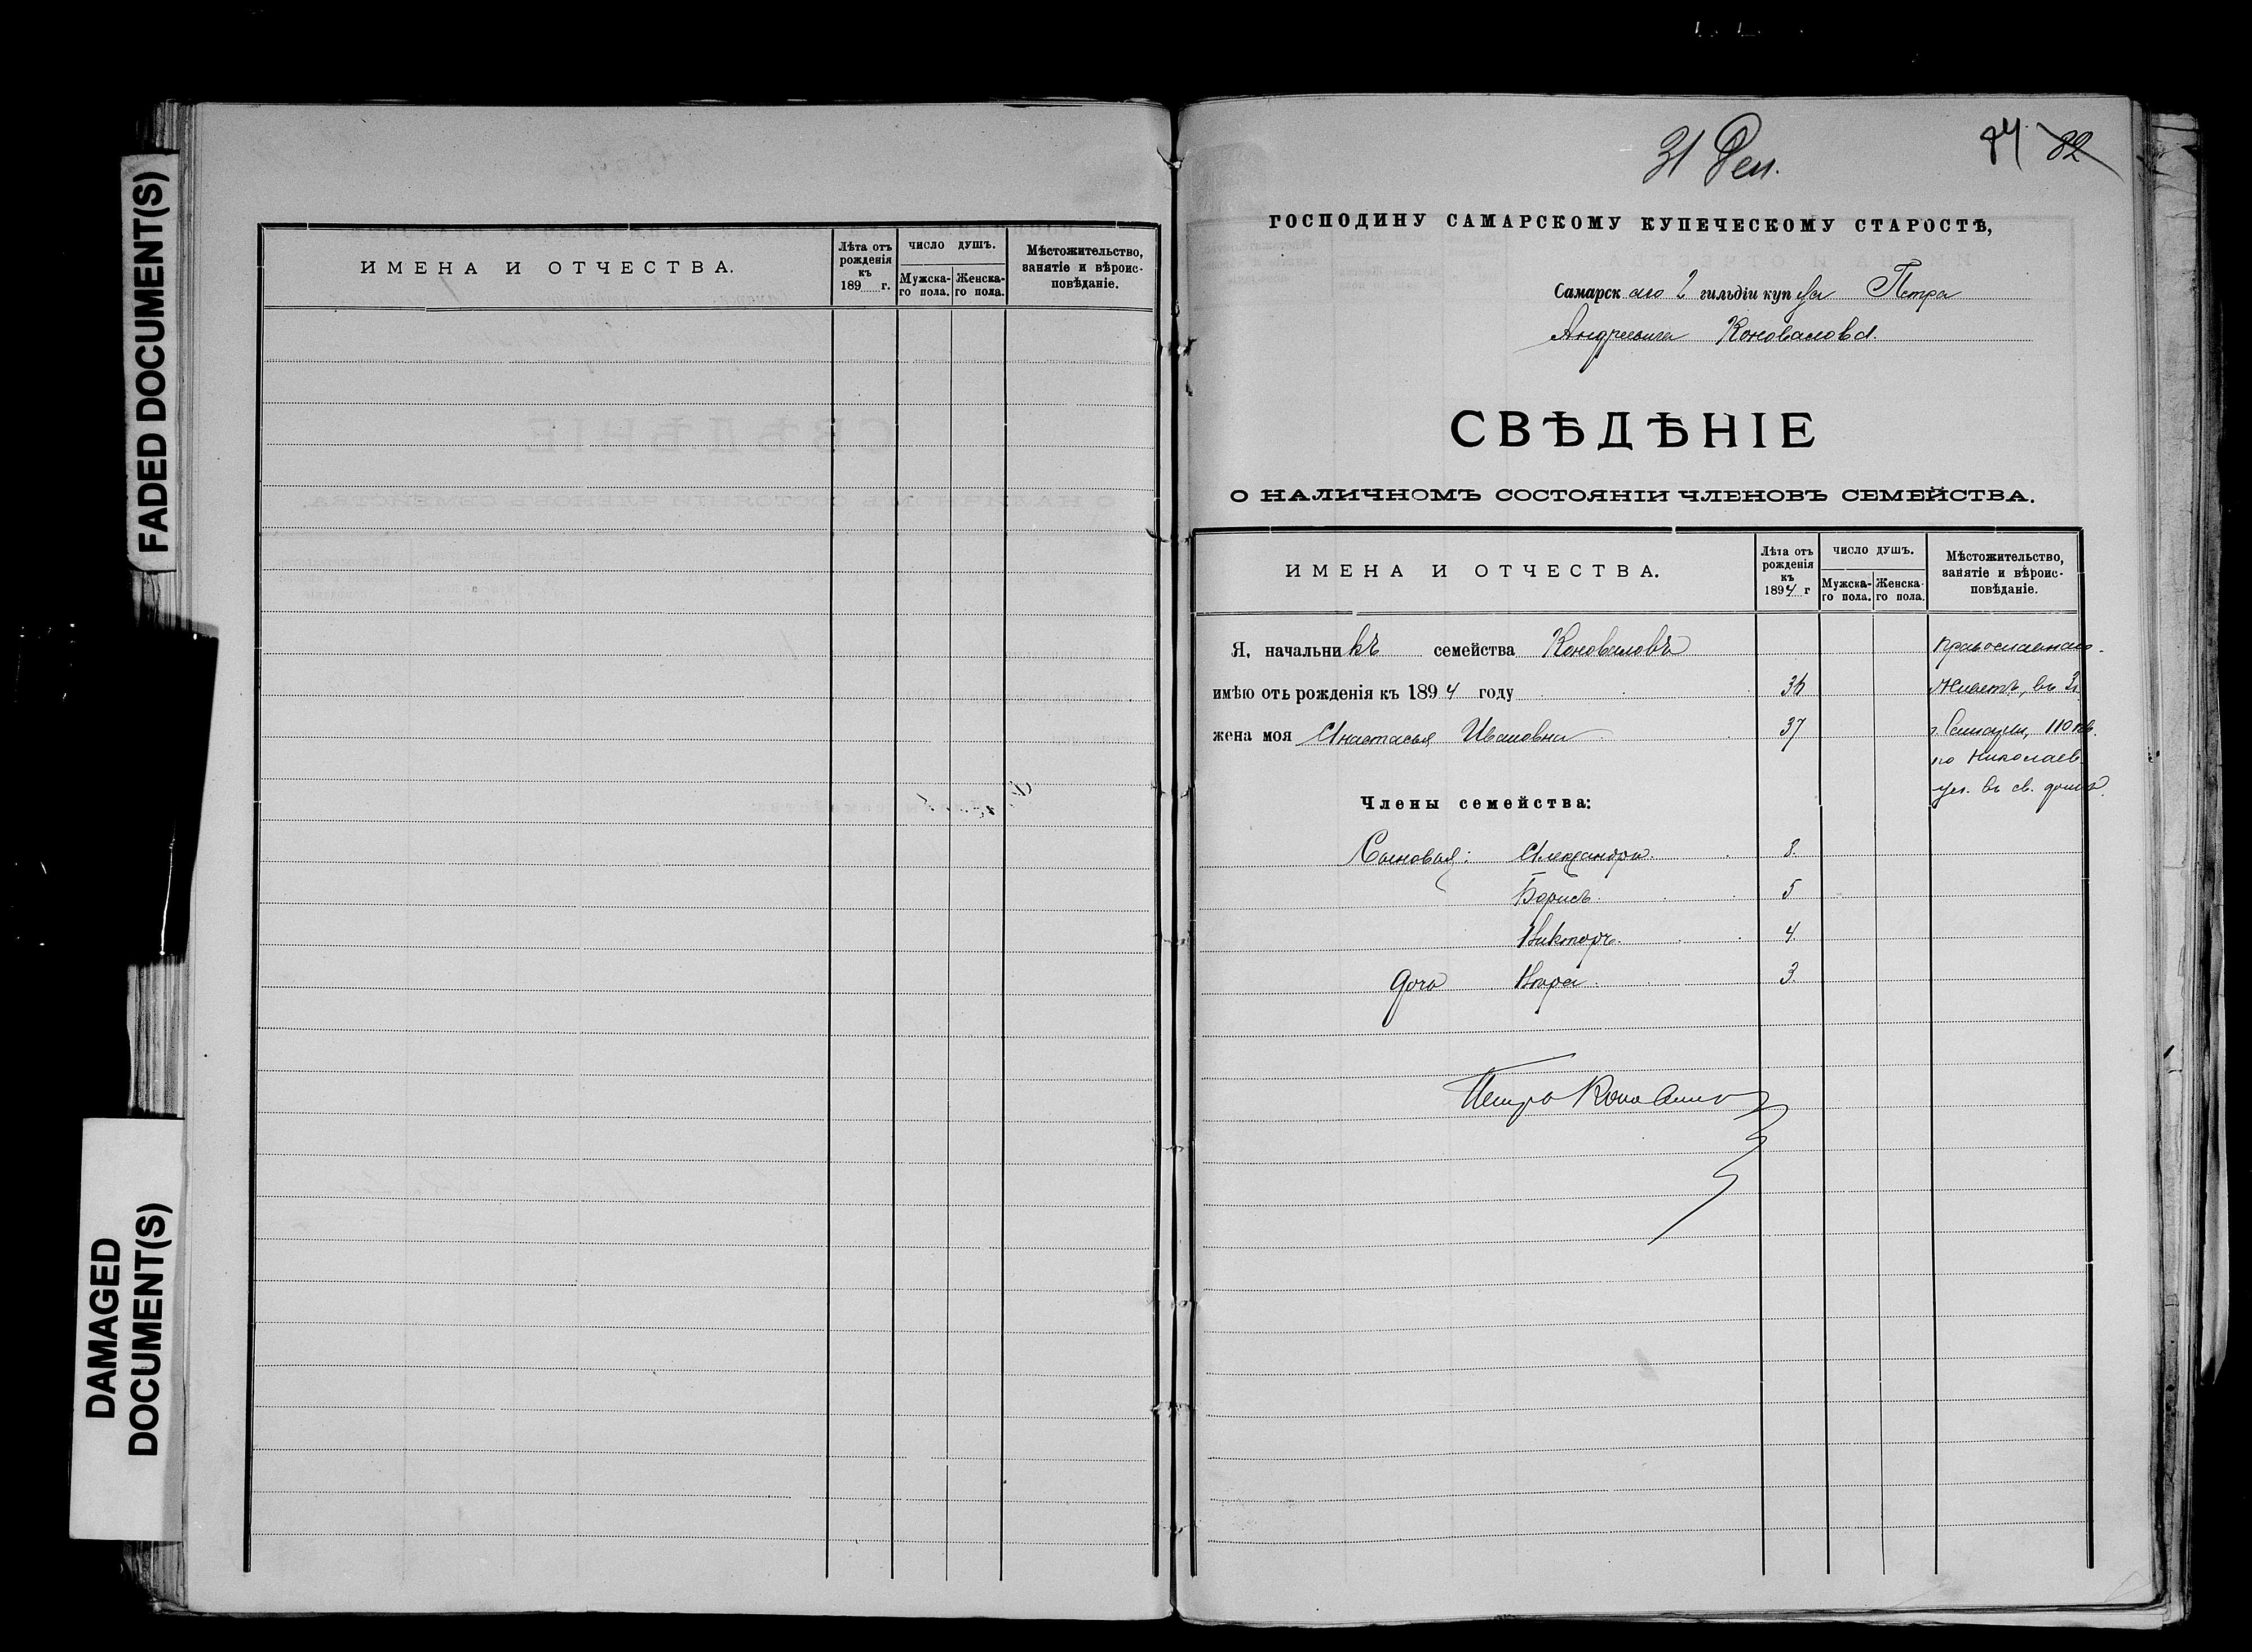 FADED DOCUMENT(S)
DAMAGED
DOCUMENT(S)
ИМЕНА И ОТЧЕСТВА.
Лѣта отъ рожденія къ 189 г.
ЧИСЛО ДУШЪ.
Мужска-го пола.
Женска-го пола.
Мѣстожительство, занятіе и вѣроис-повѣданіе.
31 Дек.
84 82
ГОСПОДИНУ САМАРСКОМУ КУПЕЧЕСКОМУ СТАРОСТѢ,
Самарскаго 2 гильдіи купца Петра
Андреевича Коновалова.
СВѢДѢНІЕ
О НАЛИЧНОМЪ СОСТОЯНІИ ЧЛЕНОВЪ СЕМЕЙСТВА.
ИМЕНА И ОТЧЕСТВА.
Лѣта отъ рожденія къ 1894 г
ЧИСЛО ДУШЪ.
Мужска-го пола.
Женска-го пола.
Мѣстожительство, занятіе и вѣроис-повѣданіе.
Я, начальникъ семейства Коноваловъ православнаго.
имѣю отъ рожденія къ 1894 году 36 Живетъ, въ
жена моя Анастасья Ивановна 37 г. Самары, 110 кв.
по Николаев
ул. въ св. домѣ.
Члены семейства:
Сыновья: Александръ. 8.
Борисъ. 5
Викторъ. 4.
Дочь Вѣра. 3.
Петръ Коновалов